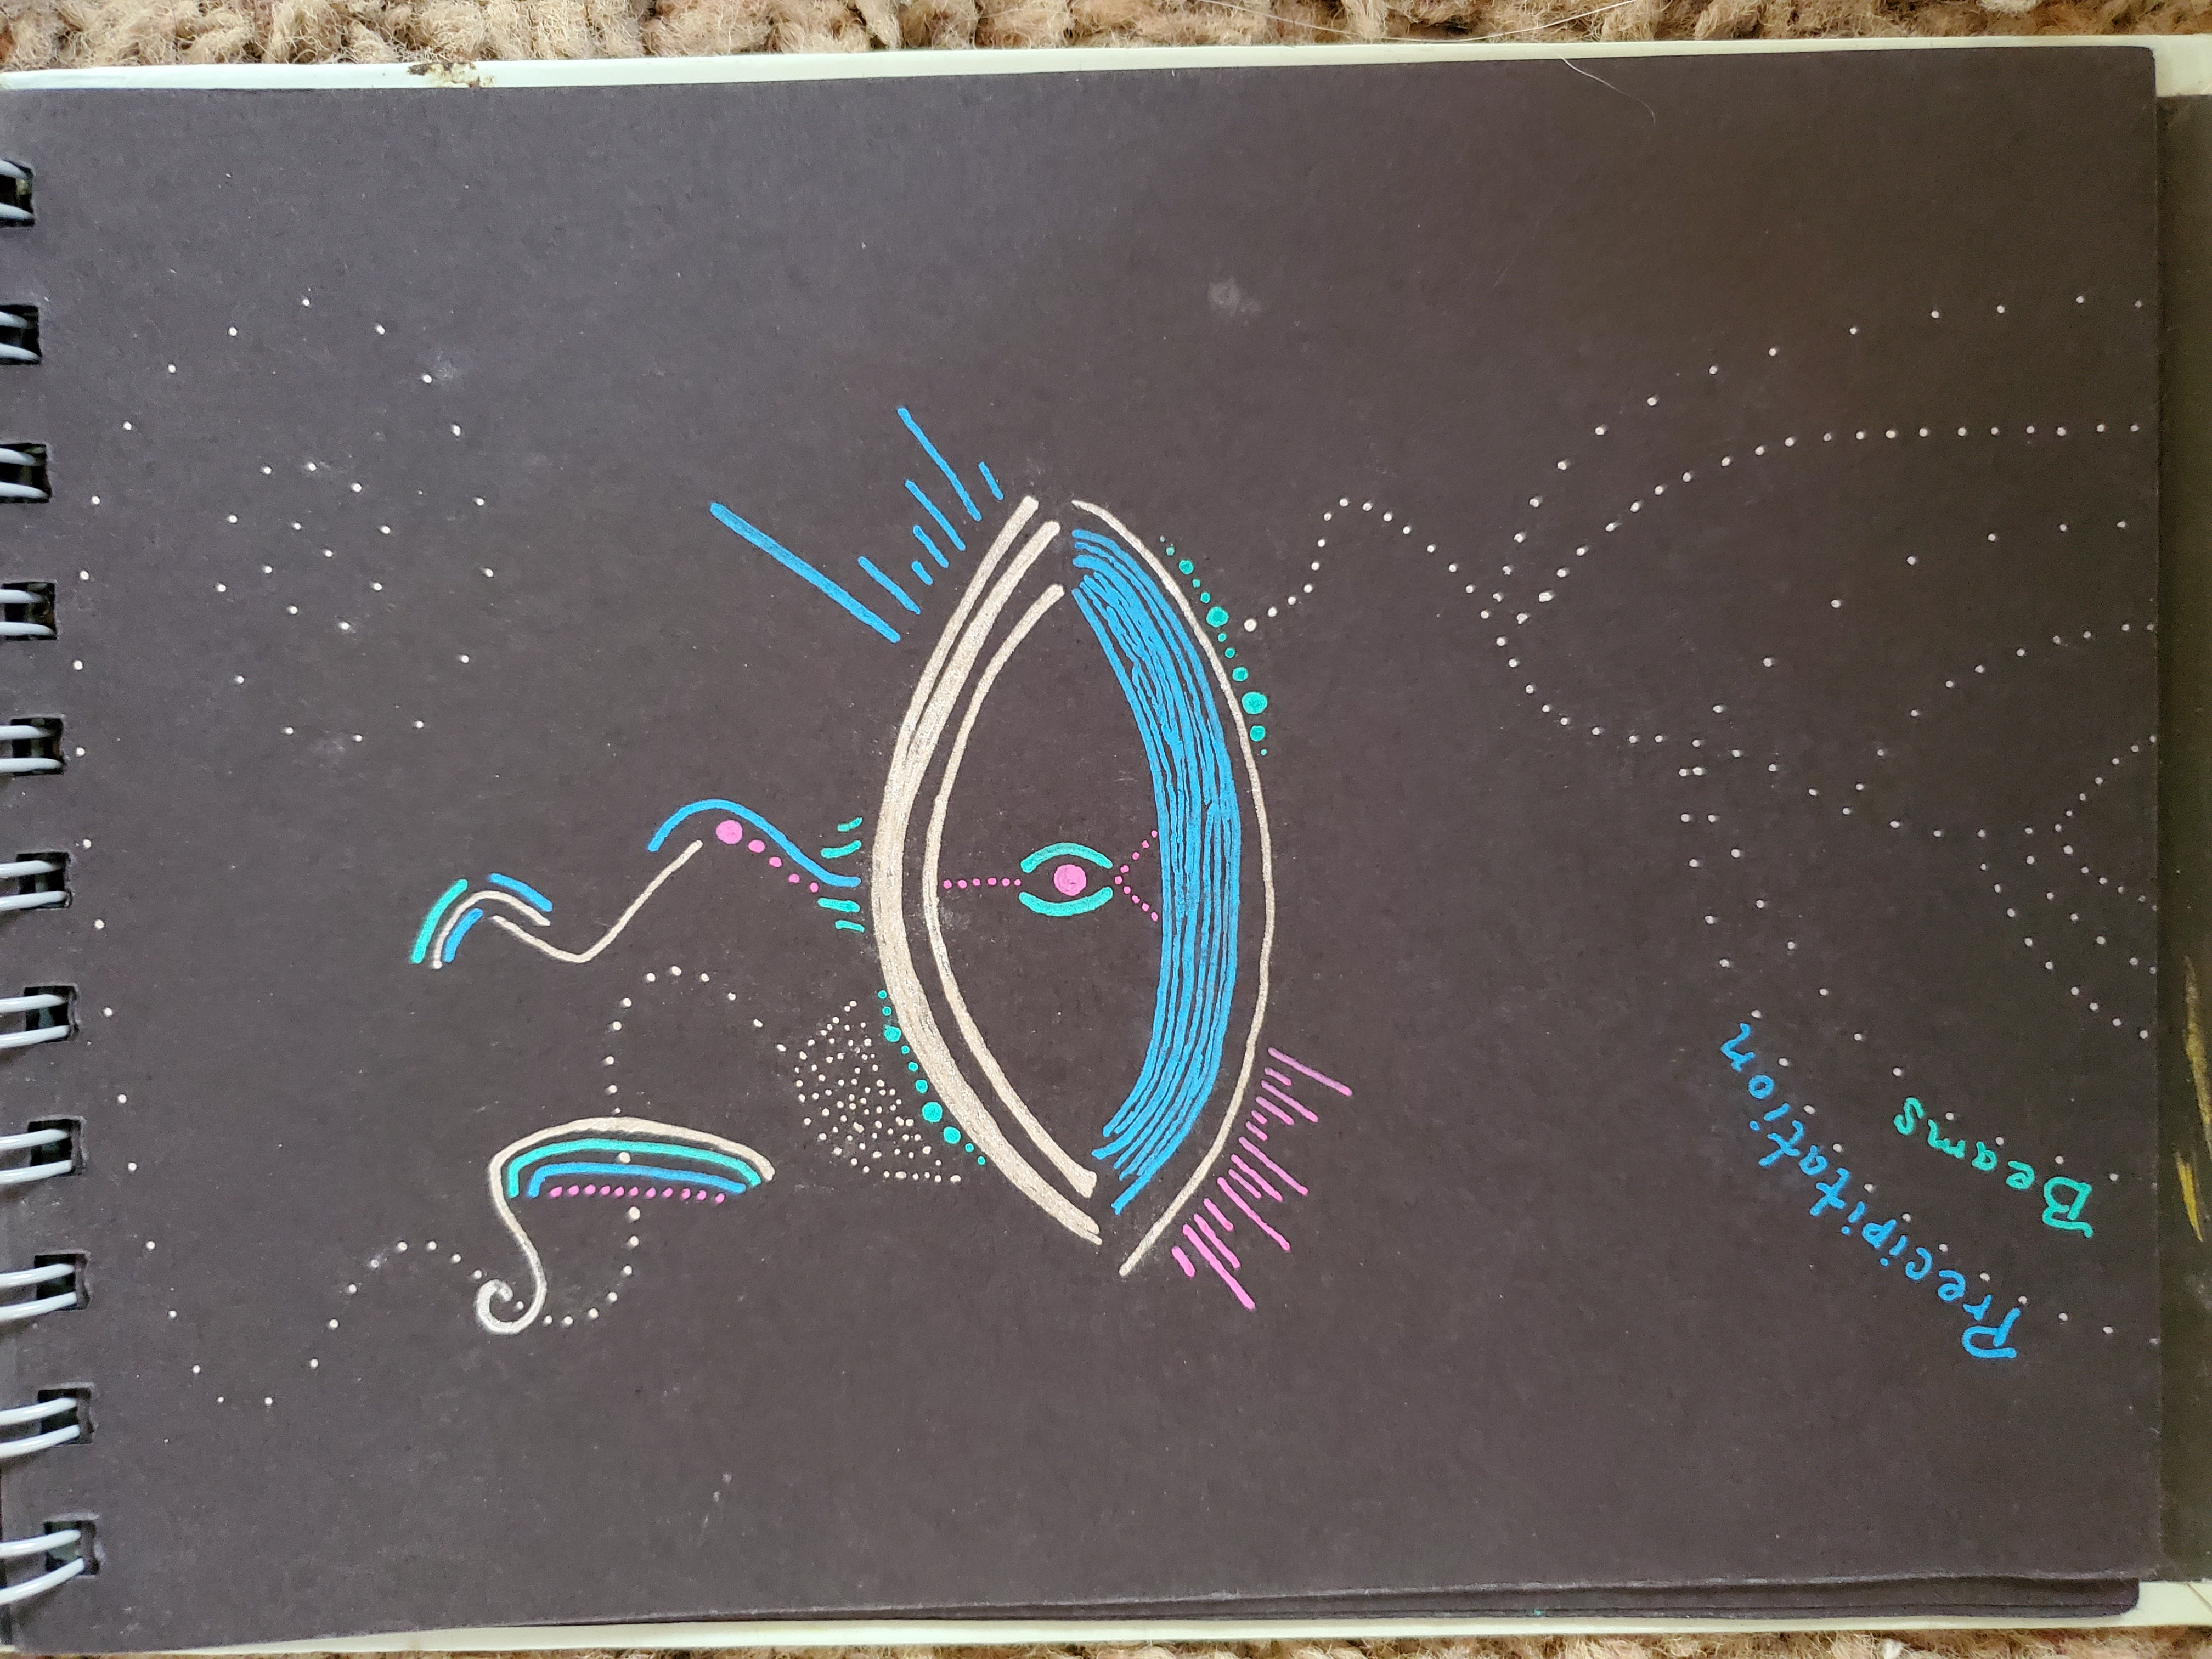 Precipitation
Beams